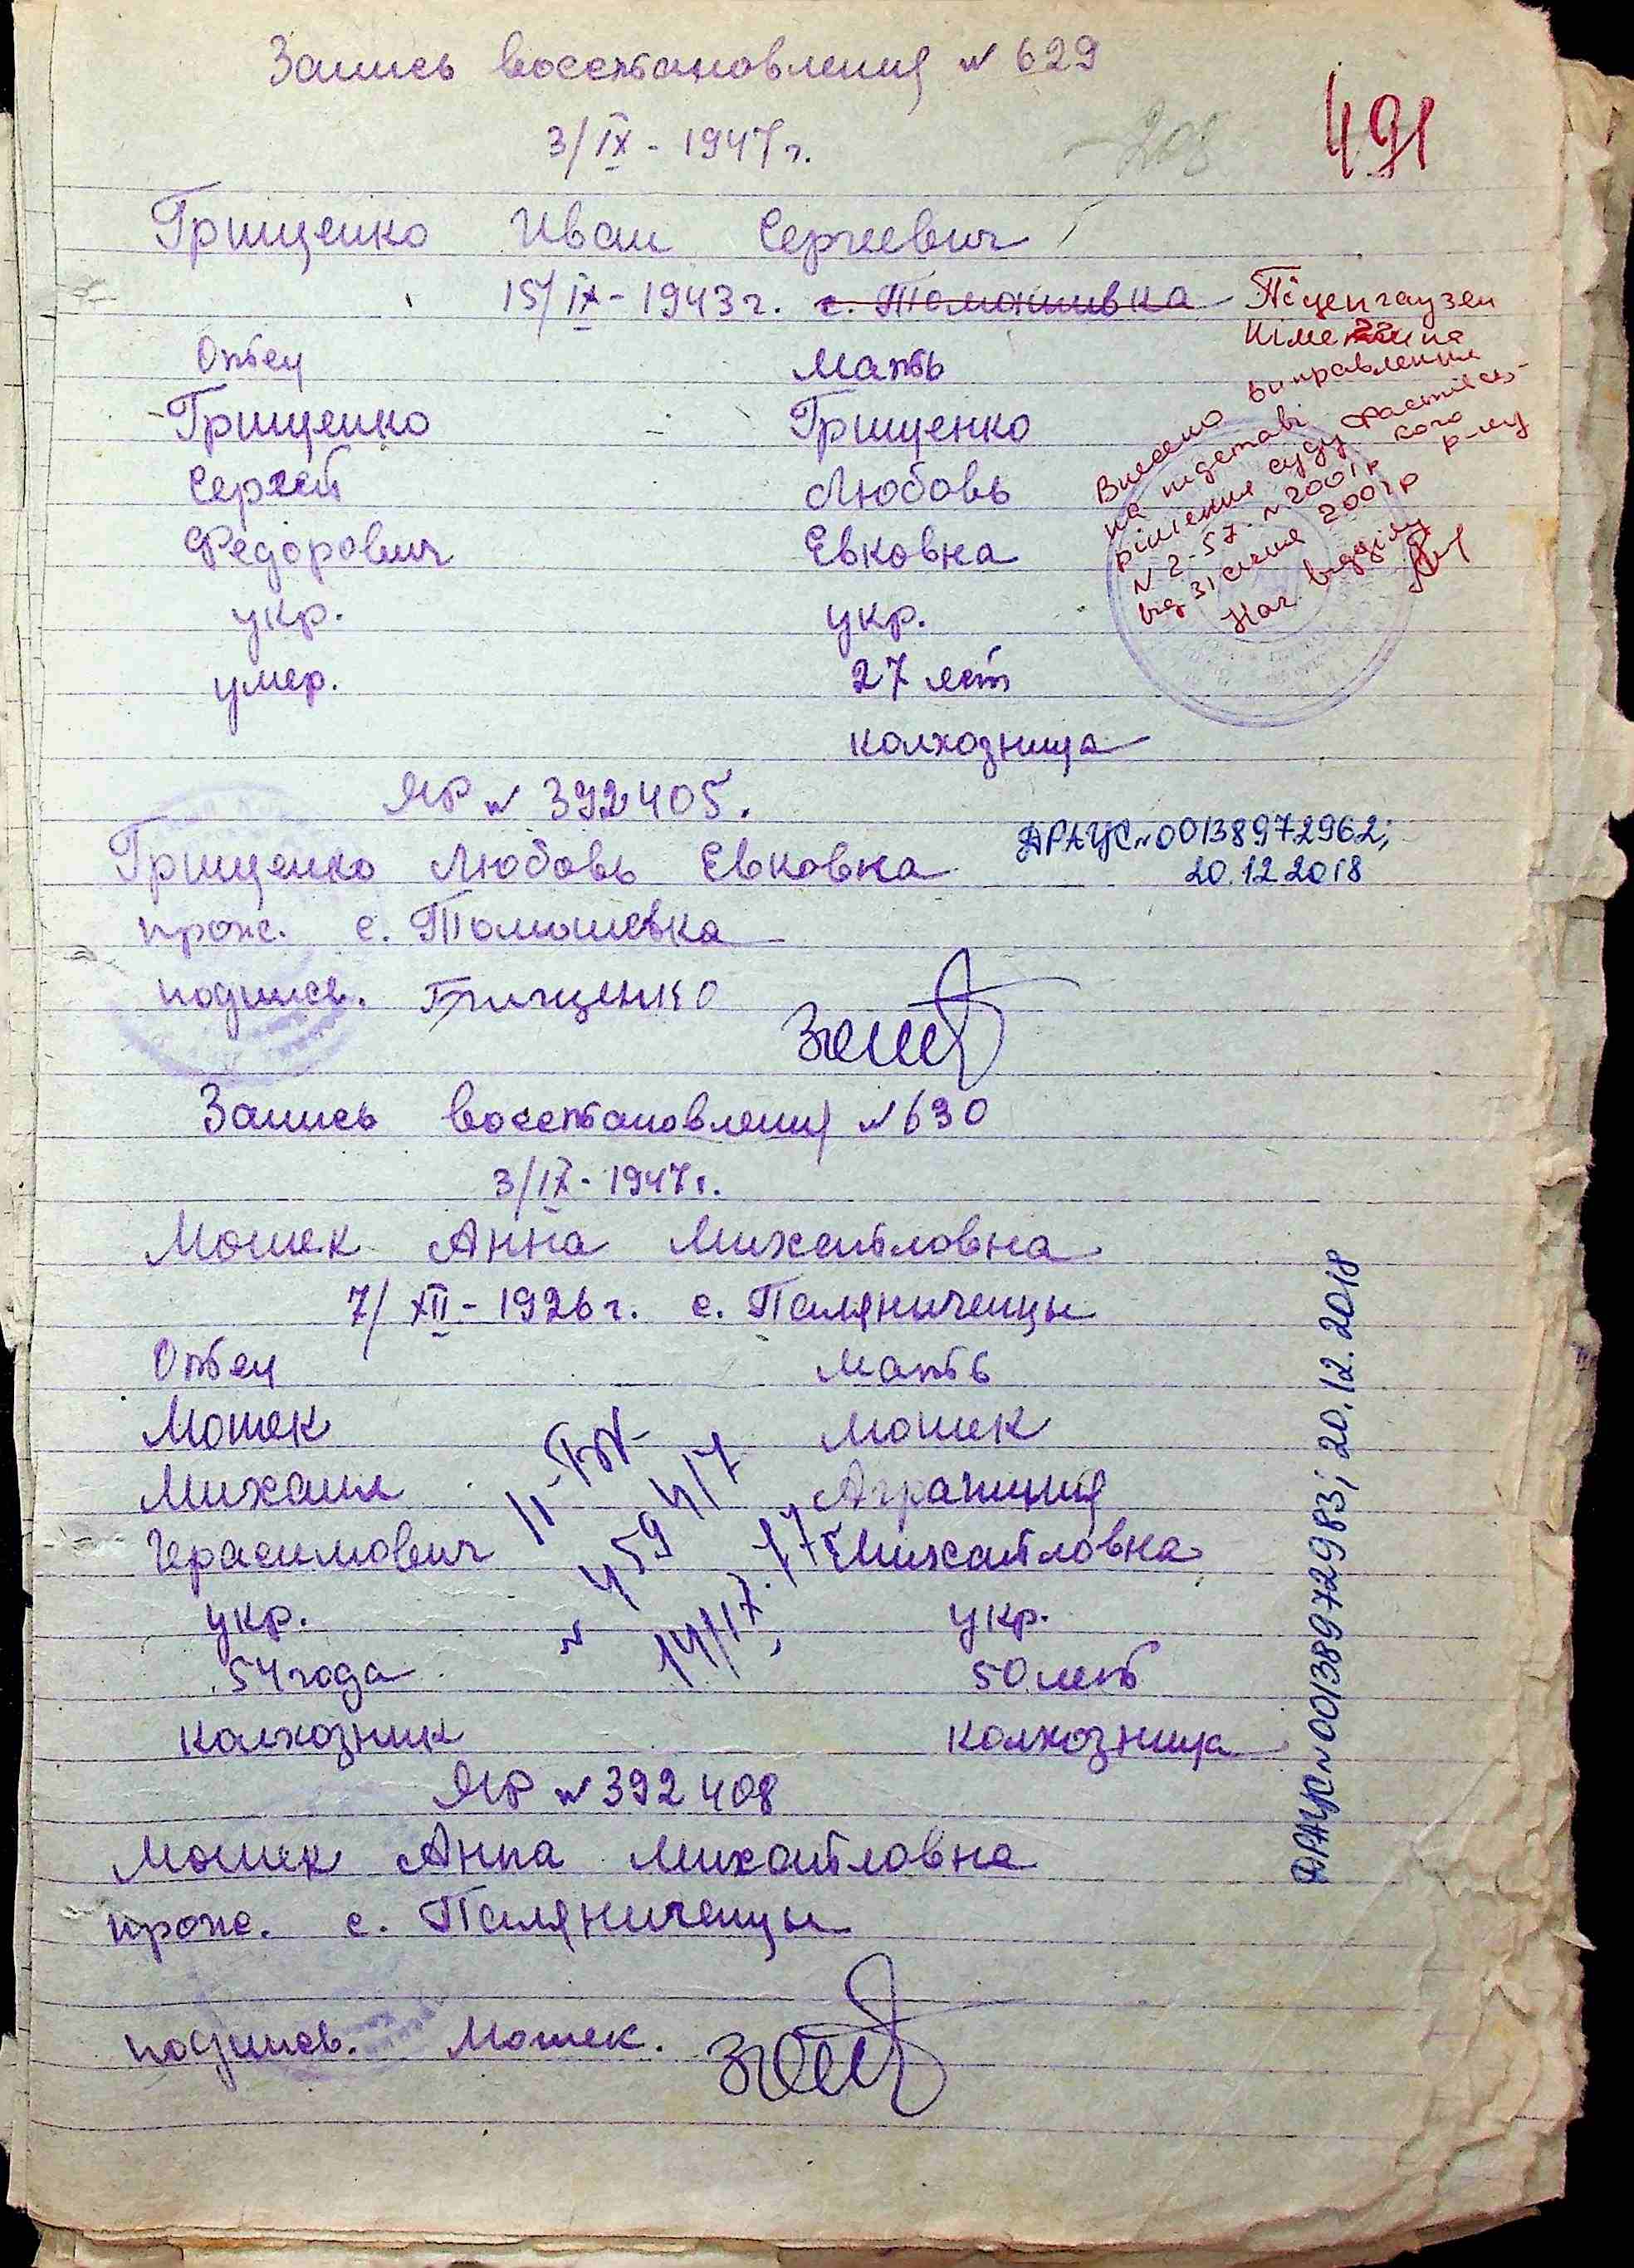 Запись восстановления № 629
3/IX - 1947 г.
208
491
Грищенко Иван Сергеевич
15/IX - 1943 г. с. Томашивка Піценгаузен
Німеччина
Отец Мать
Грищенко Грищенко
Сергей Любовь
Федорович Евковна
укр. укр.
умер. 27 лет
колхозница
Внесено виправлення
на підставі
рішення суду Фастівсь-
кого р-ну
N 2-57. 2001 р
від 31 січня 2001 р
Нач. відділу
ЯР № 392405.
Грищенко Любовь Евковна
прож. с. Томашевка
подпись. Грищенко
ДРАЦС №00138972962;
20.12.2018
Запись восстановления № 630
3/IX - 1947 г.
Мошек Анна Михайловна
7/XII - 1926 г. с. Паляниченцы
Отец Мать
Мошек Мошек
Михаил Аграпина
Герасимович Михайловна
укр. укр.
54 года 50 лет
колхозник колхозница
II-БК
№ 459417
14/17.
ЯР № 392408
Мошек Анна Михайловна
прож. с. Паляниченцы
подпись. Мошек.
ДРАЦС №00138972983; 20.12.2018